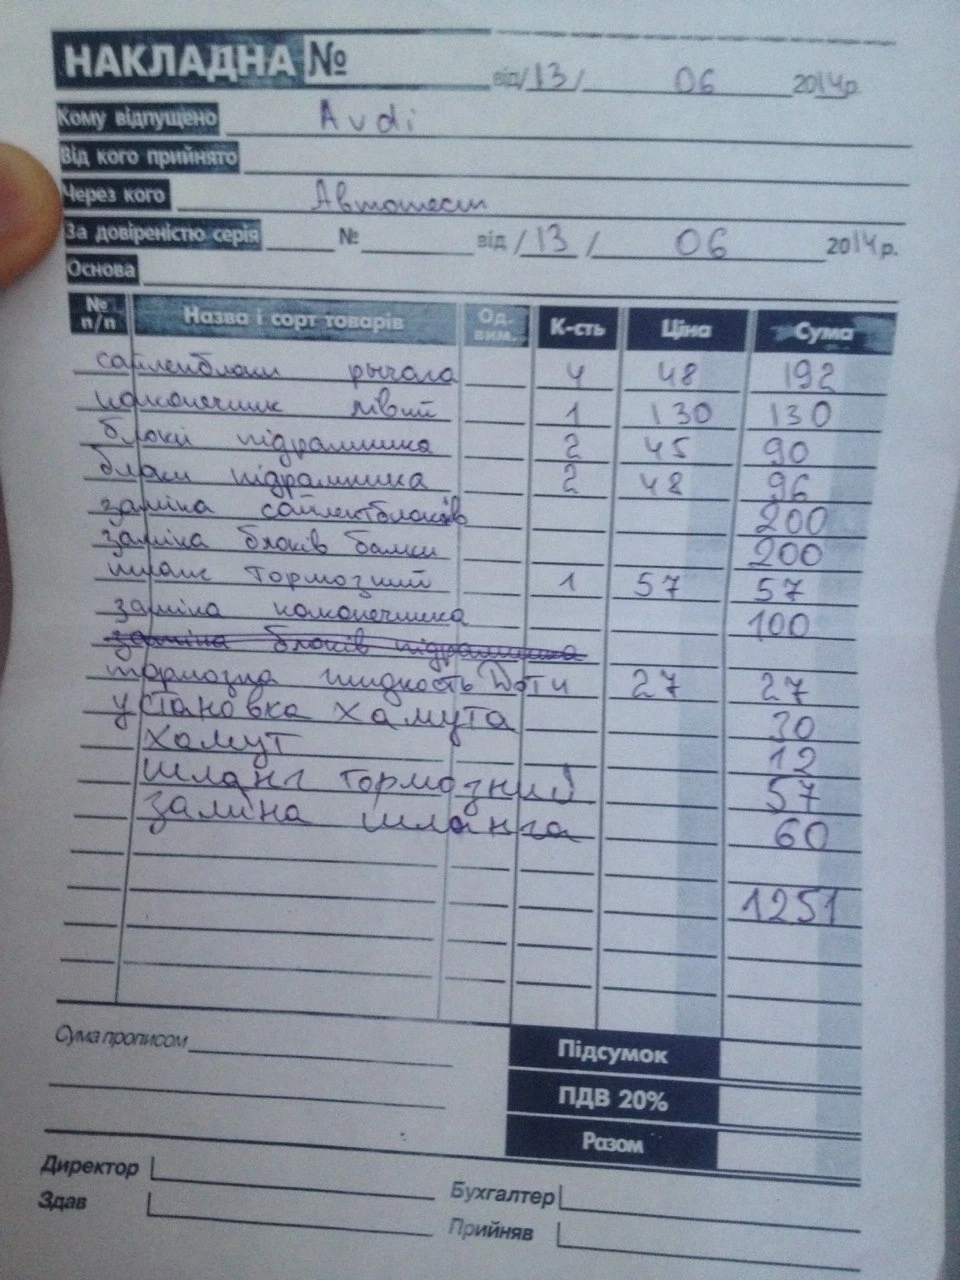 НАКЛАДНА № від /13/ 06 2014р.
Кому відпущено Avdi
Від кого прийнято
Через кого Автотест
За довіреністю серія № від /13/ 06 2014р.
Основа
№ п/п Назва і сорт товарів Од. вим. К-сть Ціна Сума
сайленблоки рычага 4 48 192
наконечник лівий 1 130 130
блоки підрамника 2 45 90
блоки підрамника 2 48 96
заміна сайлентблоків 200
заміна блоків балки 200
шланг тормозний 1 57 57
заміна наконечника 100
заміна блоків підрамника
тормозна жидкость Дот4 27 27
установка хамута 30
хамут 12
шланг тормозний 57
заміна шланга 60
1251
Сума прописом
Підсумок
ПДВ 20%
Разом
Директор Бухгалтер
Здав Прийняв